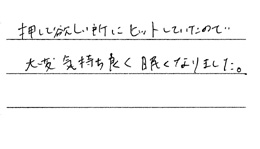 押して欲しい所にヒットしていたので
大変気持ち良く眠くなりました。